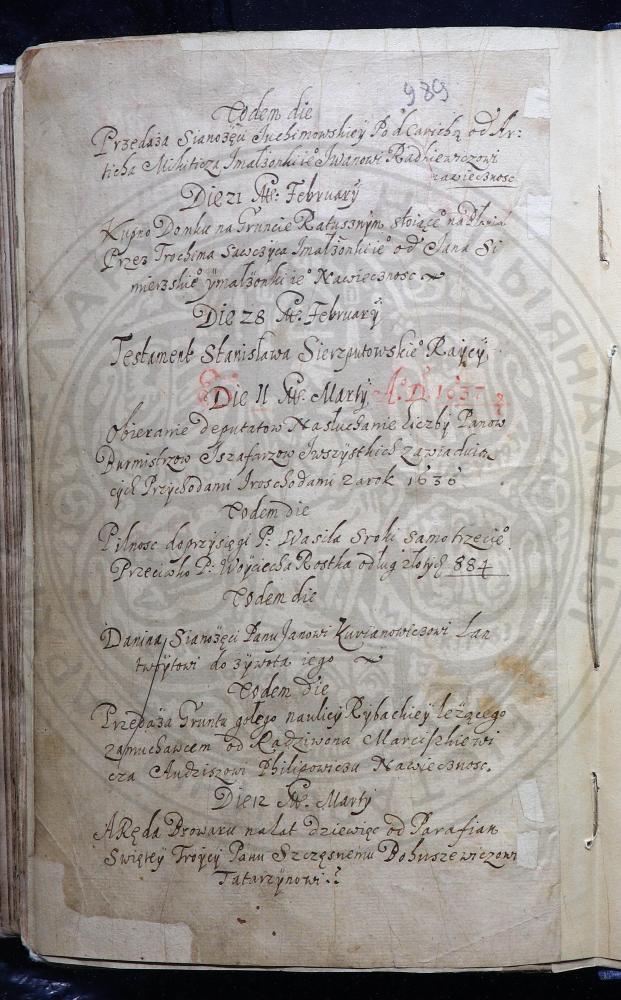 989
Eodem die
Przedaża Sianożęci Juchimowskiey Pod Carichą od Ar:
ticha Mihiticza Jmałżonki ie° Jwanowi Radkiewiczowi
nawiecznosc
Die 21 Me: February
Kupno Domku na Gruncie Ratusznÿm stoiące° na
Przez Trochima Jmałżonki ie° od Jana Si
mierzskie° ÿmałżonki ie° Nawiecznosc
Die 28 Me. February
Testament Stanisława Sierzputowskie° Raÿcÿ
Die 11 Me. Martÿ A: D. 1637
Obieranie deputatow Nasłuchanie liczby Panow
Burmistrzow Jszafarzow Jwszystkich zawiaduią
cych Przychodami Jroschodami zarok 1636
Eodem die
Pilnosc doprzysięgi P: Wasila Sroki samotrzecie°
Przeciwko P: Woyciecha Rostka odług złotych 884
Eodem die
Danina Sianożęci Panu Janowi Kurianowiczowi Lan
twoÿtowi do żÿwota iego
Eodem die
Przedaża Gruntu gołego naulicy Rybackieÿ leżącego
zamuchawcem od Radziwona Marciszkiewi
cza Andziszowi Philipowiczu Nawiecznosc.
Die 12 Me. Martÿ
ARęda Browaru nalat dziewięc od Parafian
Swiętey Troycÿ Panu Szczęsnemu Bohuszewiczowi
Tatarzÿnowi